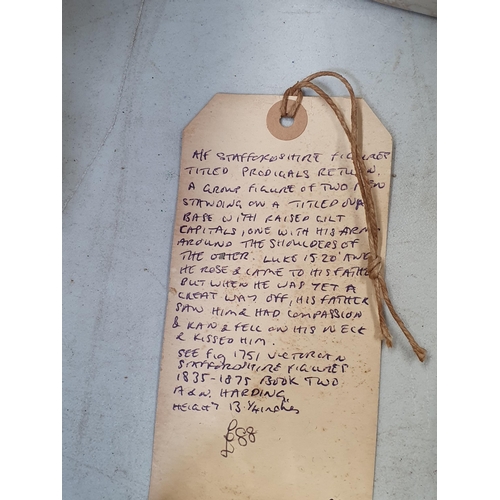 A/F STAFFORDSHIRE FIGURES
TITLED PRODIGALS RETURN.
A GROUP FIGURE OF TWO MEN
STANDING ON A TITLED OVAL
BASE WITH RAISED GILT
CAPITALS, ONE WITH HIS ARM
AROUND THE SHOULDERS OF
THE OTHER. LUKE 15 20' AND
HE ROSE & CAME TO HIS FATHER
BUT WHEN HE WAS YET A
GREAT WAY OFF, HIS FATHER
SAW HIM & HAD COMPASSION
& RAN & FELL ON HIS NECK
& KISSED HIM.
SEE Fig 1751 VICTORIAN
STAFFORDSHIRE FIGURES
1835-1875 BOOK TWO
A & N. HARDING.
HEIGHT 13.¼ inches
£88